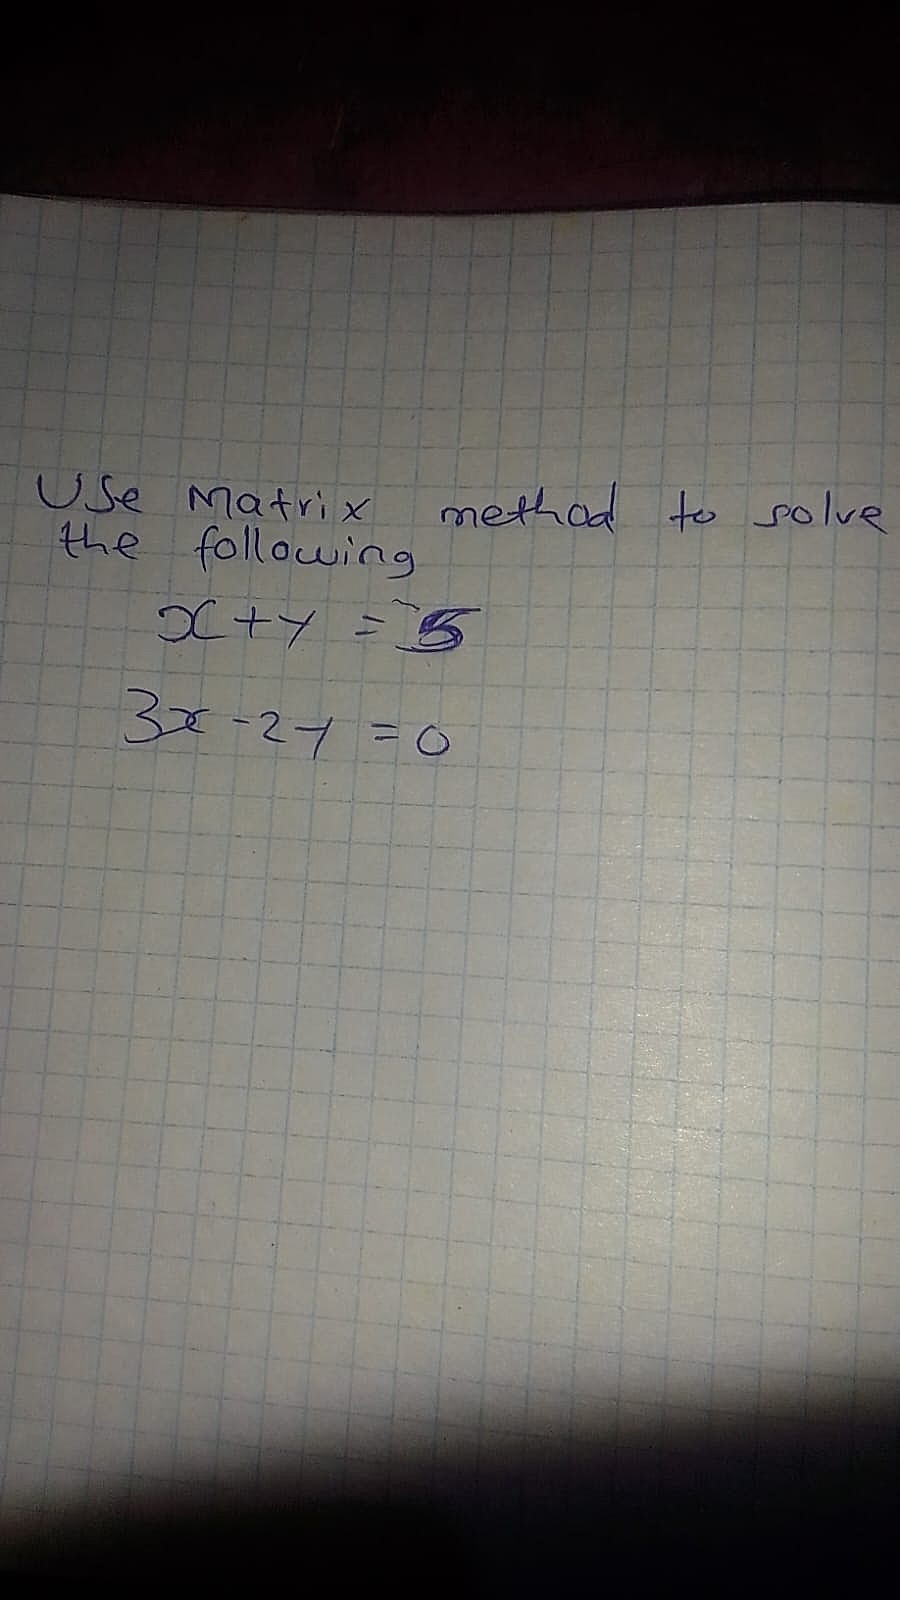 Use Matrix method to solve
the following
x+y = 5
3x-2y = 0